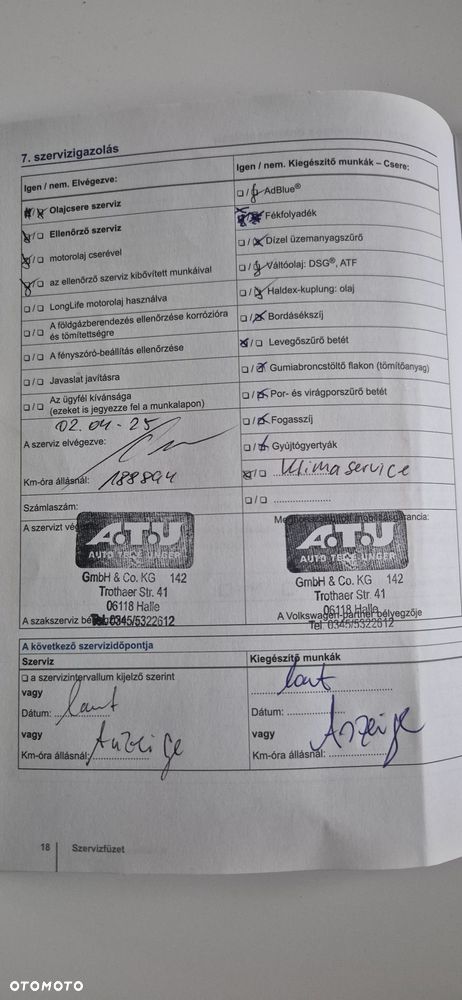 7. szervizigazolás
Igen / nem. Elvégezve:
Olajcsere szerviz
Ellenőrző szerviz
motorolaj cserével
az ellenőrző szerviz kibővített munkáival
LongLife motorolaj használva
A földgázberendezés ellenőrzése korrózióra és tömítettségre
A fényszóró-beállítás ellenőrzése
Javaslat javításra
Az ügyfél kívánsága
(ezeket is jegyezze fel a munkalapon)
02.04-25
A szerviz elvégezve:
Km-óra állásnál: 188894
Számlaszám:
A szervizt
A.T.U
AUTO TEILE UNGER
GmbH & Co. KG 142
Trothaer Str. 41
06118 Halle
Tel. 0345/5322612
A szakszerviz
Igen / nem. Kiegészítő munkák – Csere:
AdBlue®
Fékfolyadék
Dízel üzemanyagszűrő
Váltóolaj: DSG®, ATF
Haldex-kuplung: olaj
Bordásékszíj
Levegőszűrő betét
Gumiabroncstöltő flakon (tömítőanyag)
Por- és virágporszűrő betét
Fogasszíj
Gyújtógyertyák
Klimaservice
A.T.U
AUTO TEILE UNGER
GmbH & Co. KG 142
Trothaer Str. 41
06118 Halle
A Volkswagen-partner bélyegzője
Tel. 0345/5322612
A következő szervizidőpontja
Szerviz
a szervizintervallum kijelző szerint
vagy
Dátum: laut
vagy
Km-óra állásnál: Anzeige
Kiegészítő munkák
laut
Dátum:
vagy Anzeige
Km-óra állásnál:
18 Szervizfüzet
OTOMOTO